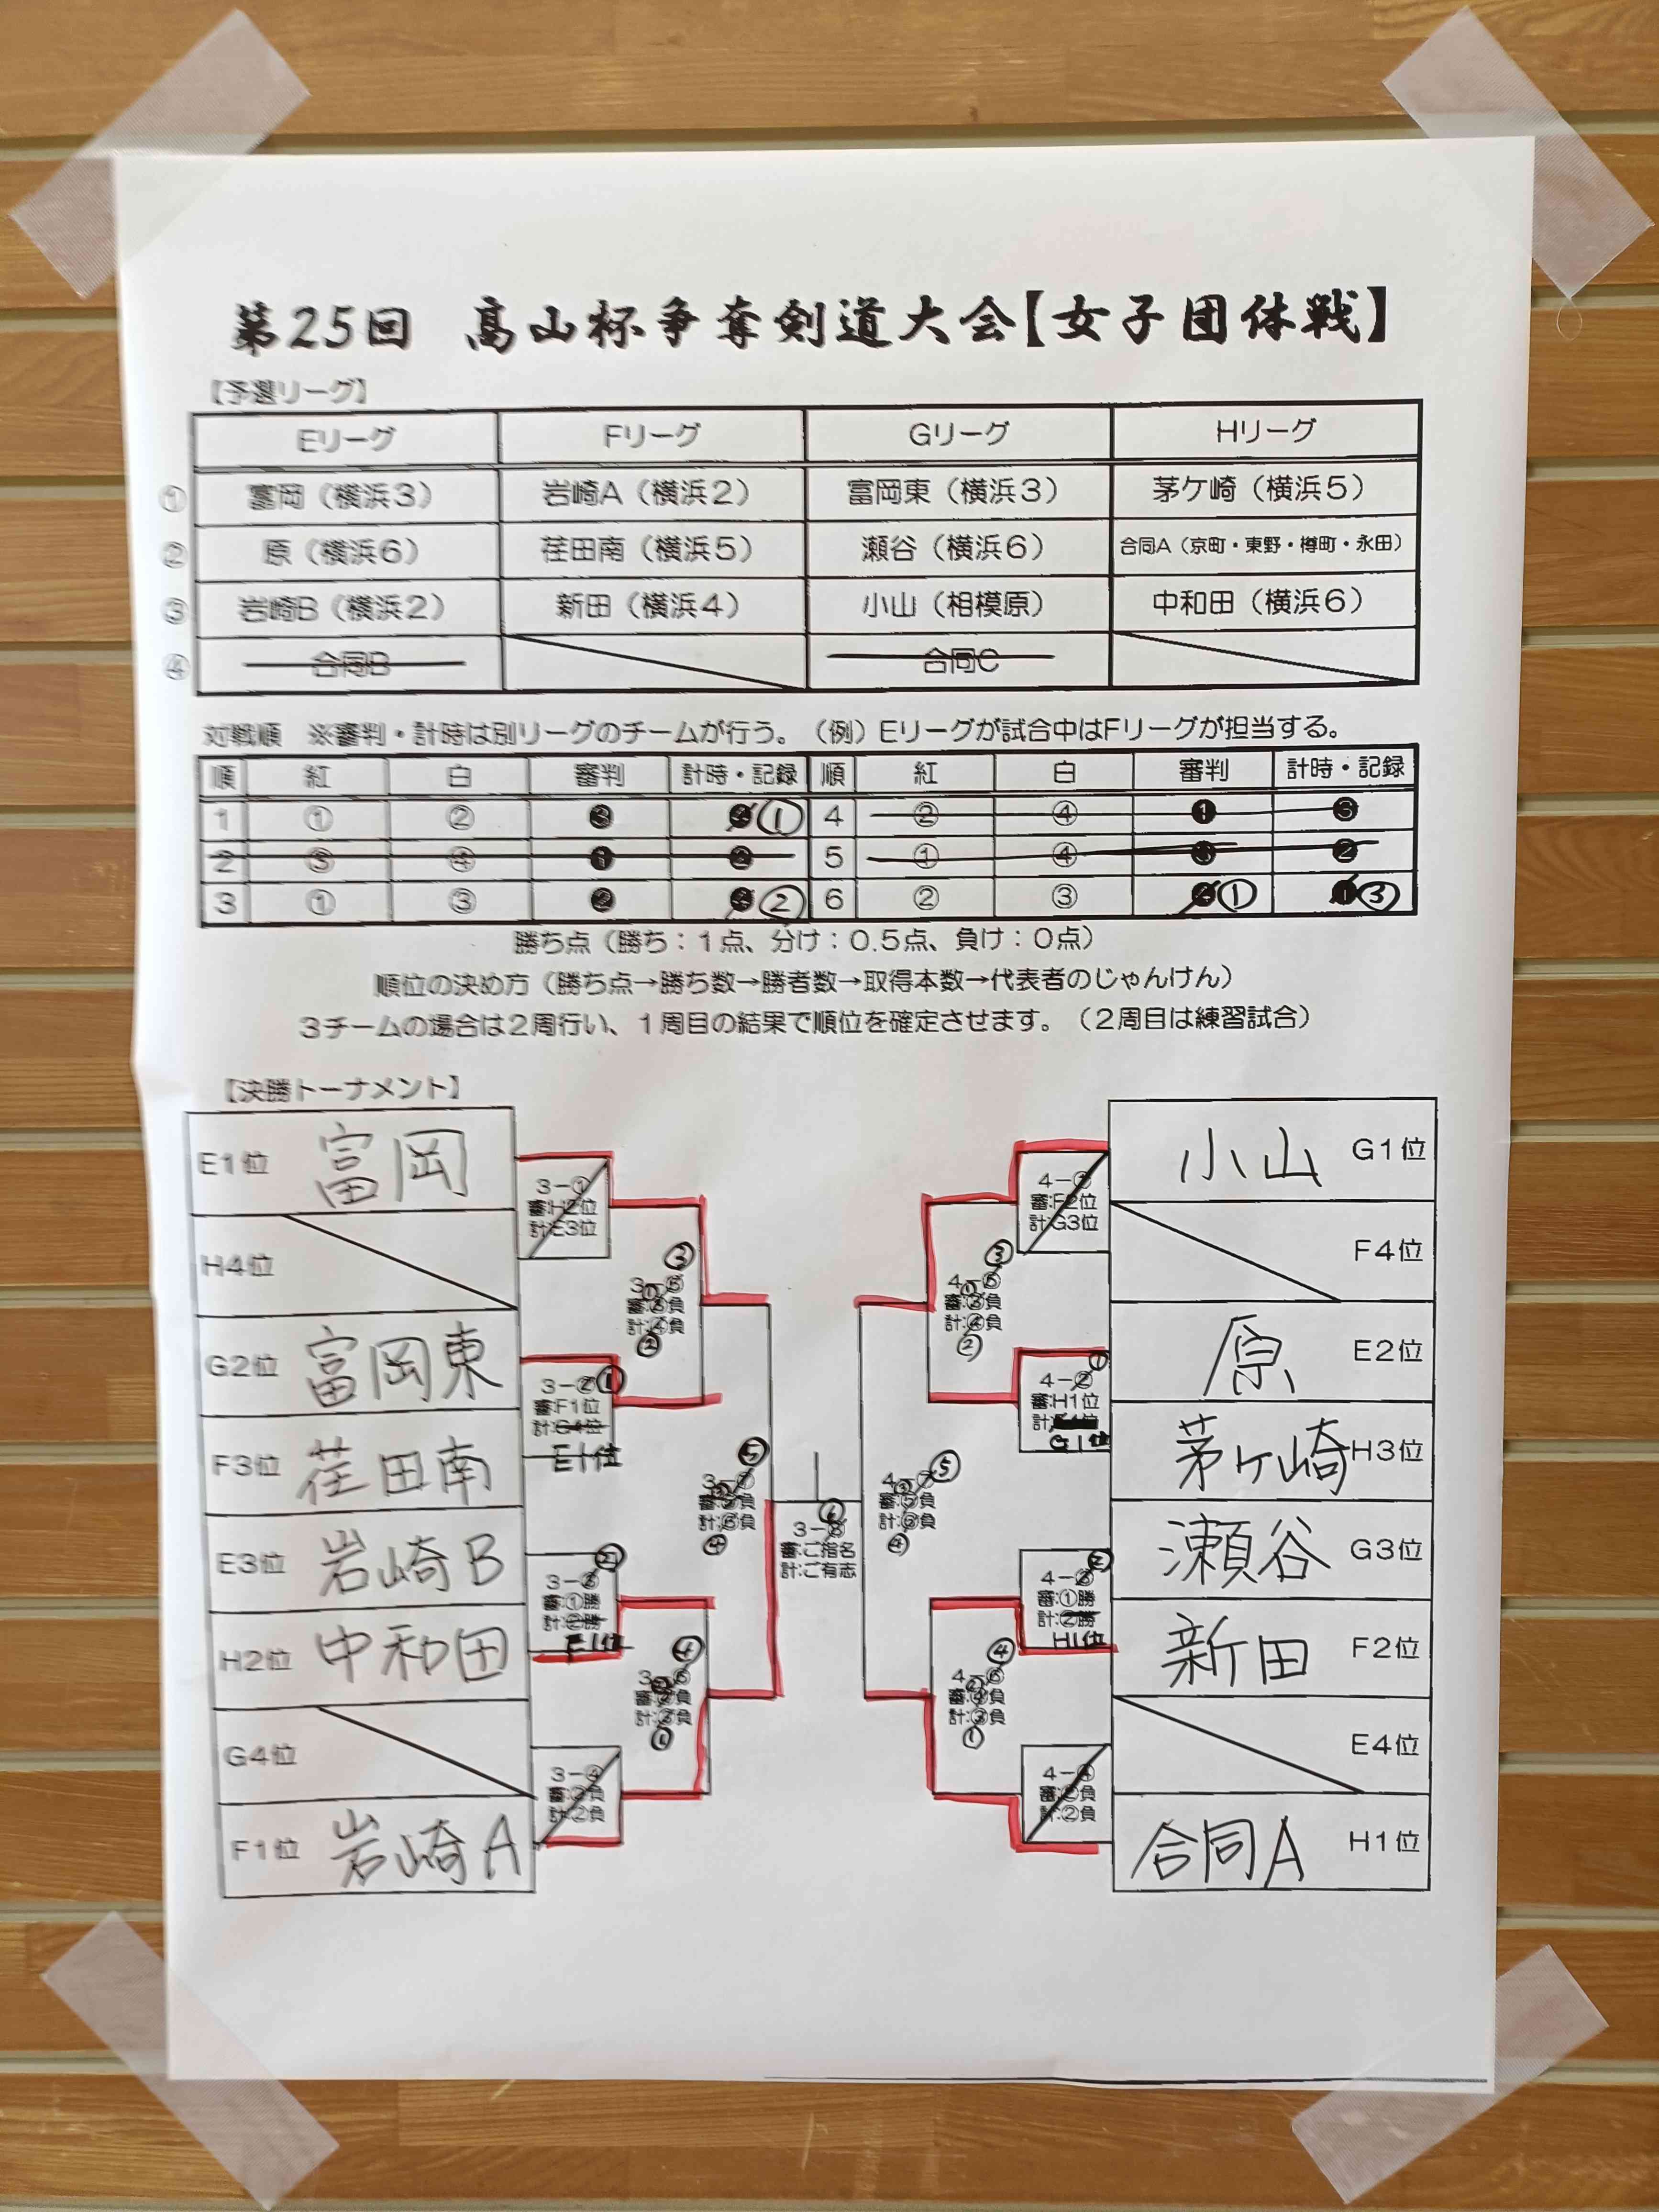 第25回 髙山杯争奪剣道大会【女子団体戦】
【予選リーグ】
Eリーグ Fリーグ Gリーグ Hリーグ
① 富岡（横浜3） 岩崎A（横浜2） 富岡東（横浜3） 茅ケ崎（横浜5）
② 原（横浜6） 荏田南（横浜5） 瀬谷（横浜6） 合同A（京町・東野・樽町・永田）
③ 岩崎B（横浜2） 新田（横浜4） 小山（相模原） 中和田（横浜6）
④ 合同B 合同C
対戦順 ※審判・計時は別リーグのチームが行う。（例）Eリーグが試合中はFリーグが担当する。
順 紅 白 審判 計時・記録 順 紅 白 審判 計時・記録
1 ① ② ❸ ① 4 ② ④ ❶ ❸
2 ③ ④ ❶ ❷ 5 ① ④ ❸ ❷
3 ① ③ ❷ ② 6 ② ③ ① ❶ ③
勝ち点（勝ち：1点、分け：0.5点、負け：0点）
順位の決め方（勝ち点→勝ち数→勝者数→取得本数→代表者のじゃんけん）
3チームの場合は2周行い、1周目の結果で順位を確定させます。（2周目は練習試合）
【決勝トーナメント】
E1位 富岡
H4位
G2位 富岡東
F3位 荏田南
E3位 岩崎B
H2位 中和田
G4位
F1位 岩崎A
3-①
審:H2位
計:E3位
③
3-⑤
審:③負
計:④負
②
3-② ①
審:F1位
計:G4位
E1位
⑤
3-⑦
審:⑤負
計:⑥負
④
②
3-③
審:①勝
計:②勝
E1位
④
3-⑥
審:②負
計:③負
①
3-④
審:②負
計:②負
3-⑧
審:ご指名
計:ご有志
4-①
審:F2位
計:G3位
③
4-⑤
審:③負
計:④負
②
①
4-②
審:H1位
計:
G1位
⑤
4-⑦
審:⑤負
計:⑥負
④
②
4-③
審:①勝
計:②勝
H1位
④
4-⑥
審:②負
計:③負
①
4-④
審:②負
計:②負
小山 G1位
F4位
原 E2位
茅ヶ崎 H3位
瀬谷 G3位
新田 F2位
E4位
合同A H1位